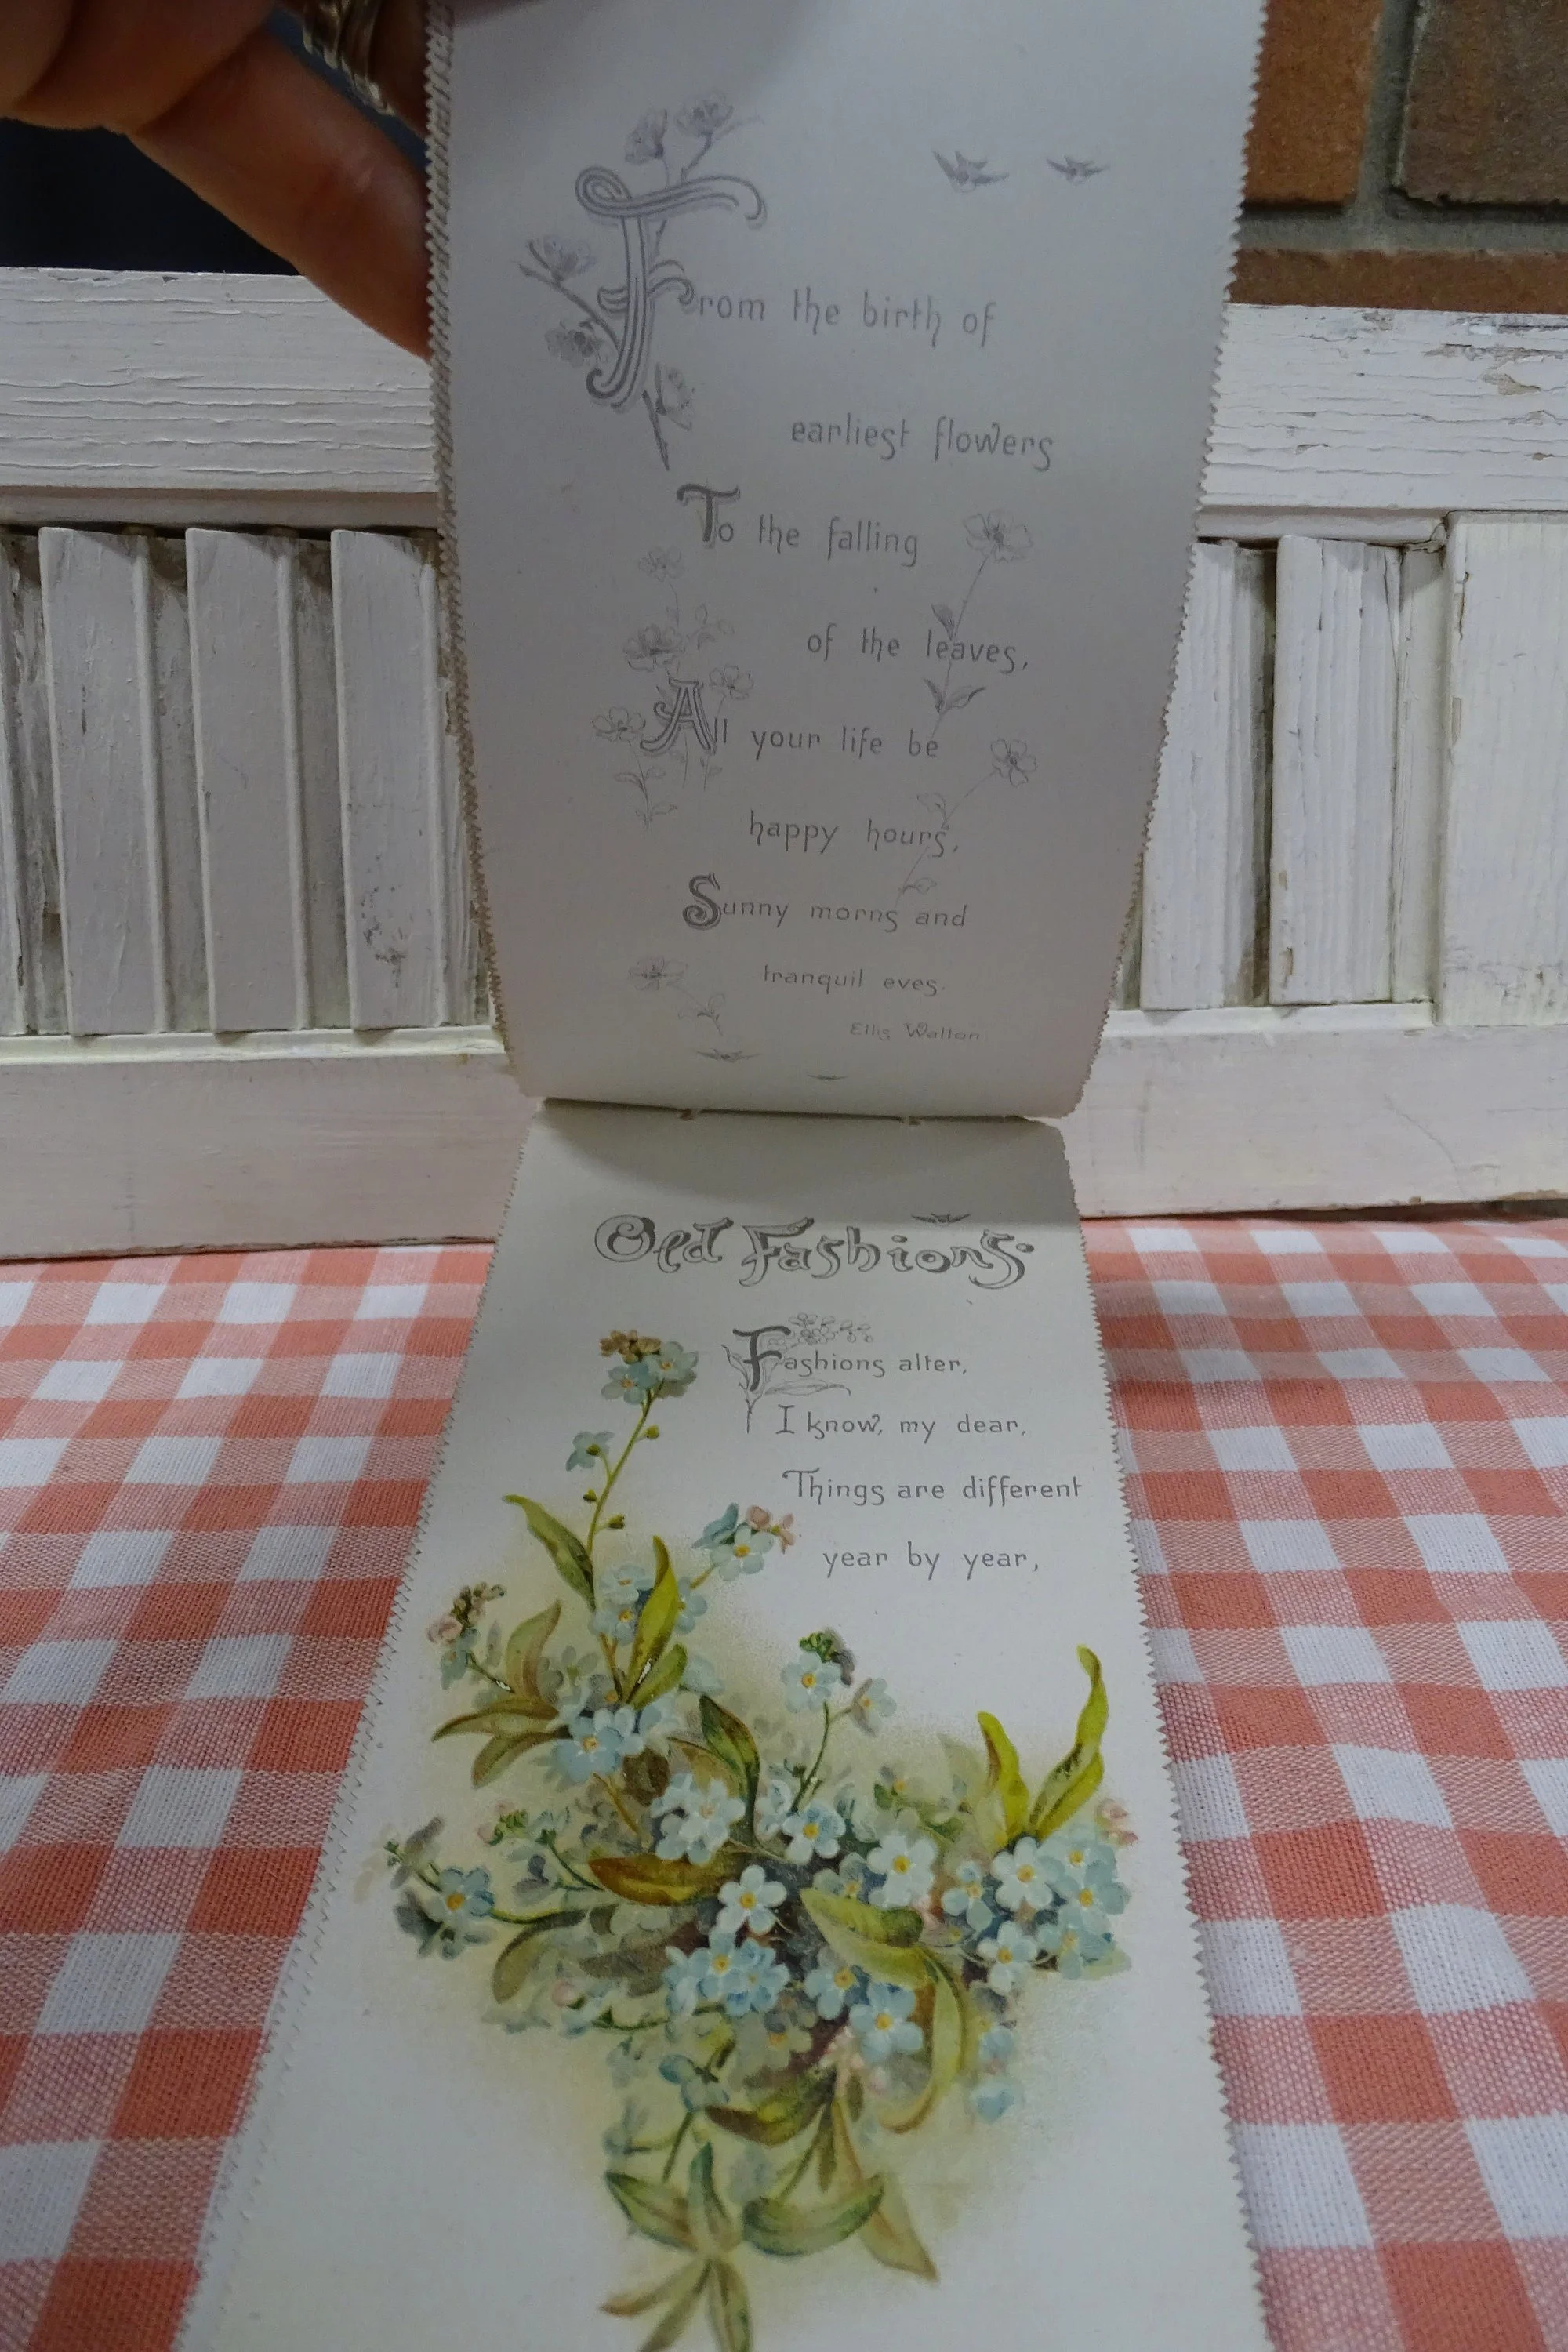 From the birth of
earliest flowers
To the falling
of the leaves,
All your life be
happy hours,
Sunny morns and
tranquil eves.
Ellis Walton
Old Fashions.
Fashions alter,
I know, my dear,
Things are different
year by year,